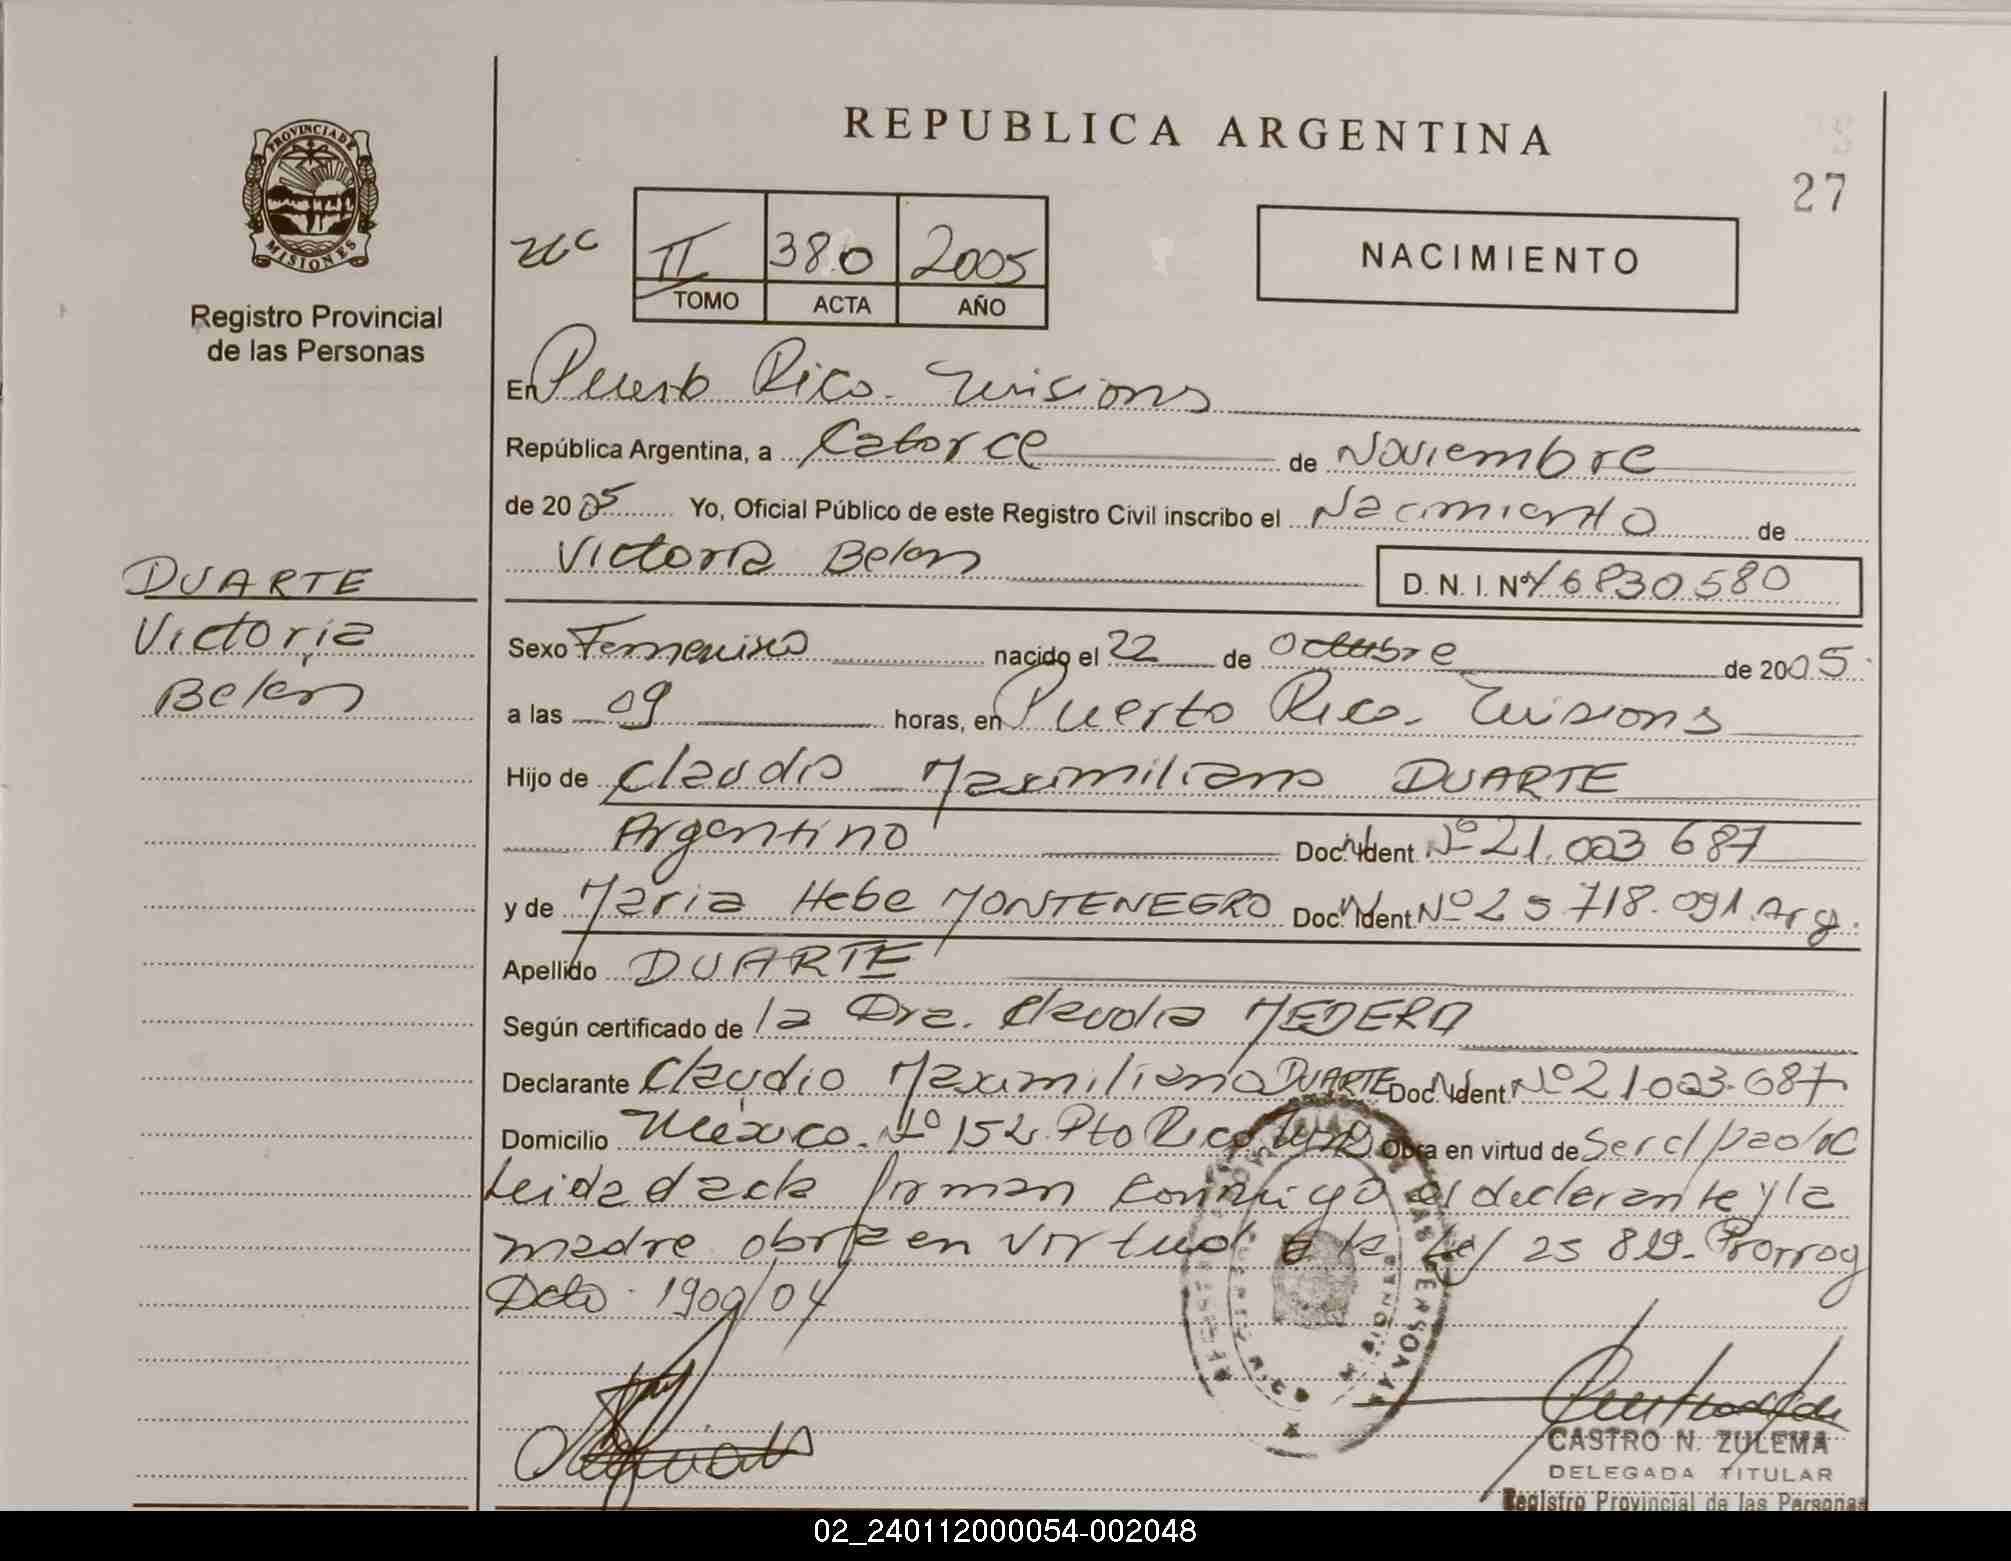 REPUBLICA ARGENTINA
27
PROVINCIA DE MISIONES
Registro Provincial
de las Personas
II 380 2005
TOMO ACTA AÑO
NACIMIENTO
En Puerto Rico. Misiones
República Argentina, a Catorce de Noviembre
de 2005 Yo, Oficial Público de este Registro Civil inscribo el Nacimiento de
Victoria Belen D. N. I. Nº 46830580
DUARTE
Victoria
Belen
Sexo Femenino nacido el 22 de Octubre de 2005.
a las 09 horas, en Puerto Rico. Misiones
Hijo de Claudio Maximiliano DUARTE
Argentino Doc. Ident. Nº 21.003 687
y de Maria Hebe MONTENEGRO Doc. Ident. Nº 25 718.091 Arg.
Apellido DUARTE
Según certificado de la Dra. Claudia MEDERO
Declarante Claudio Maximiliano DUARTE Doc. Ident. Nº 21.003.687
Domicilio México. Nº 152. Pto Rico. Mns Obra en virtud de Ser el padre
Leida el acta firman conmigo el declarante y la
madre obra en virtud de la Ley 25 819. Prorrog
Dcto. 1909/04
CASTRO N. ZULEMA
DELEGADA TITULAR
Registro Provincial de las Personas
02_240112000054-002048